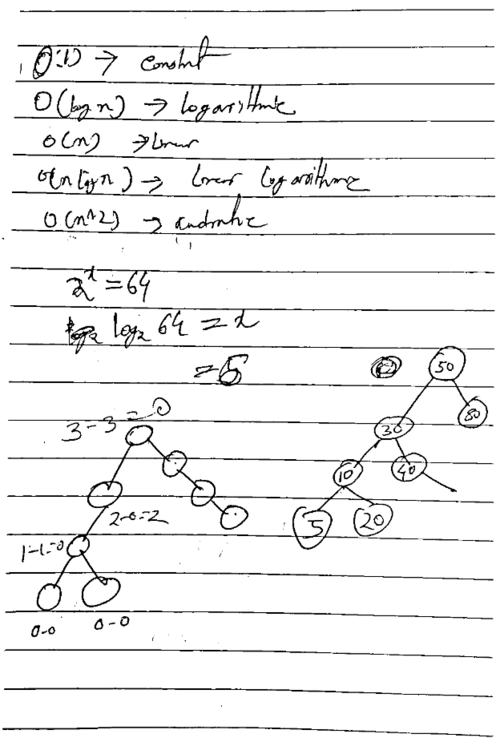 O(1) → constnt
O(log n) → logarithmic
O(n) → linear
O(n log n) → linear logarithmic
O(n^2) → quadratic
2^x = 64
log₂ 64 = x
= 6
50
30 80
10 40
5 20
3-3=0
2-0=2
1-1=0
0-0 0-0